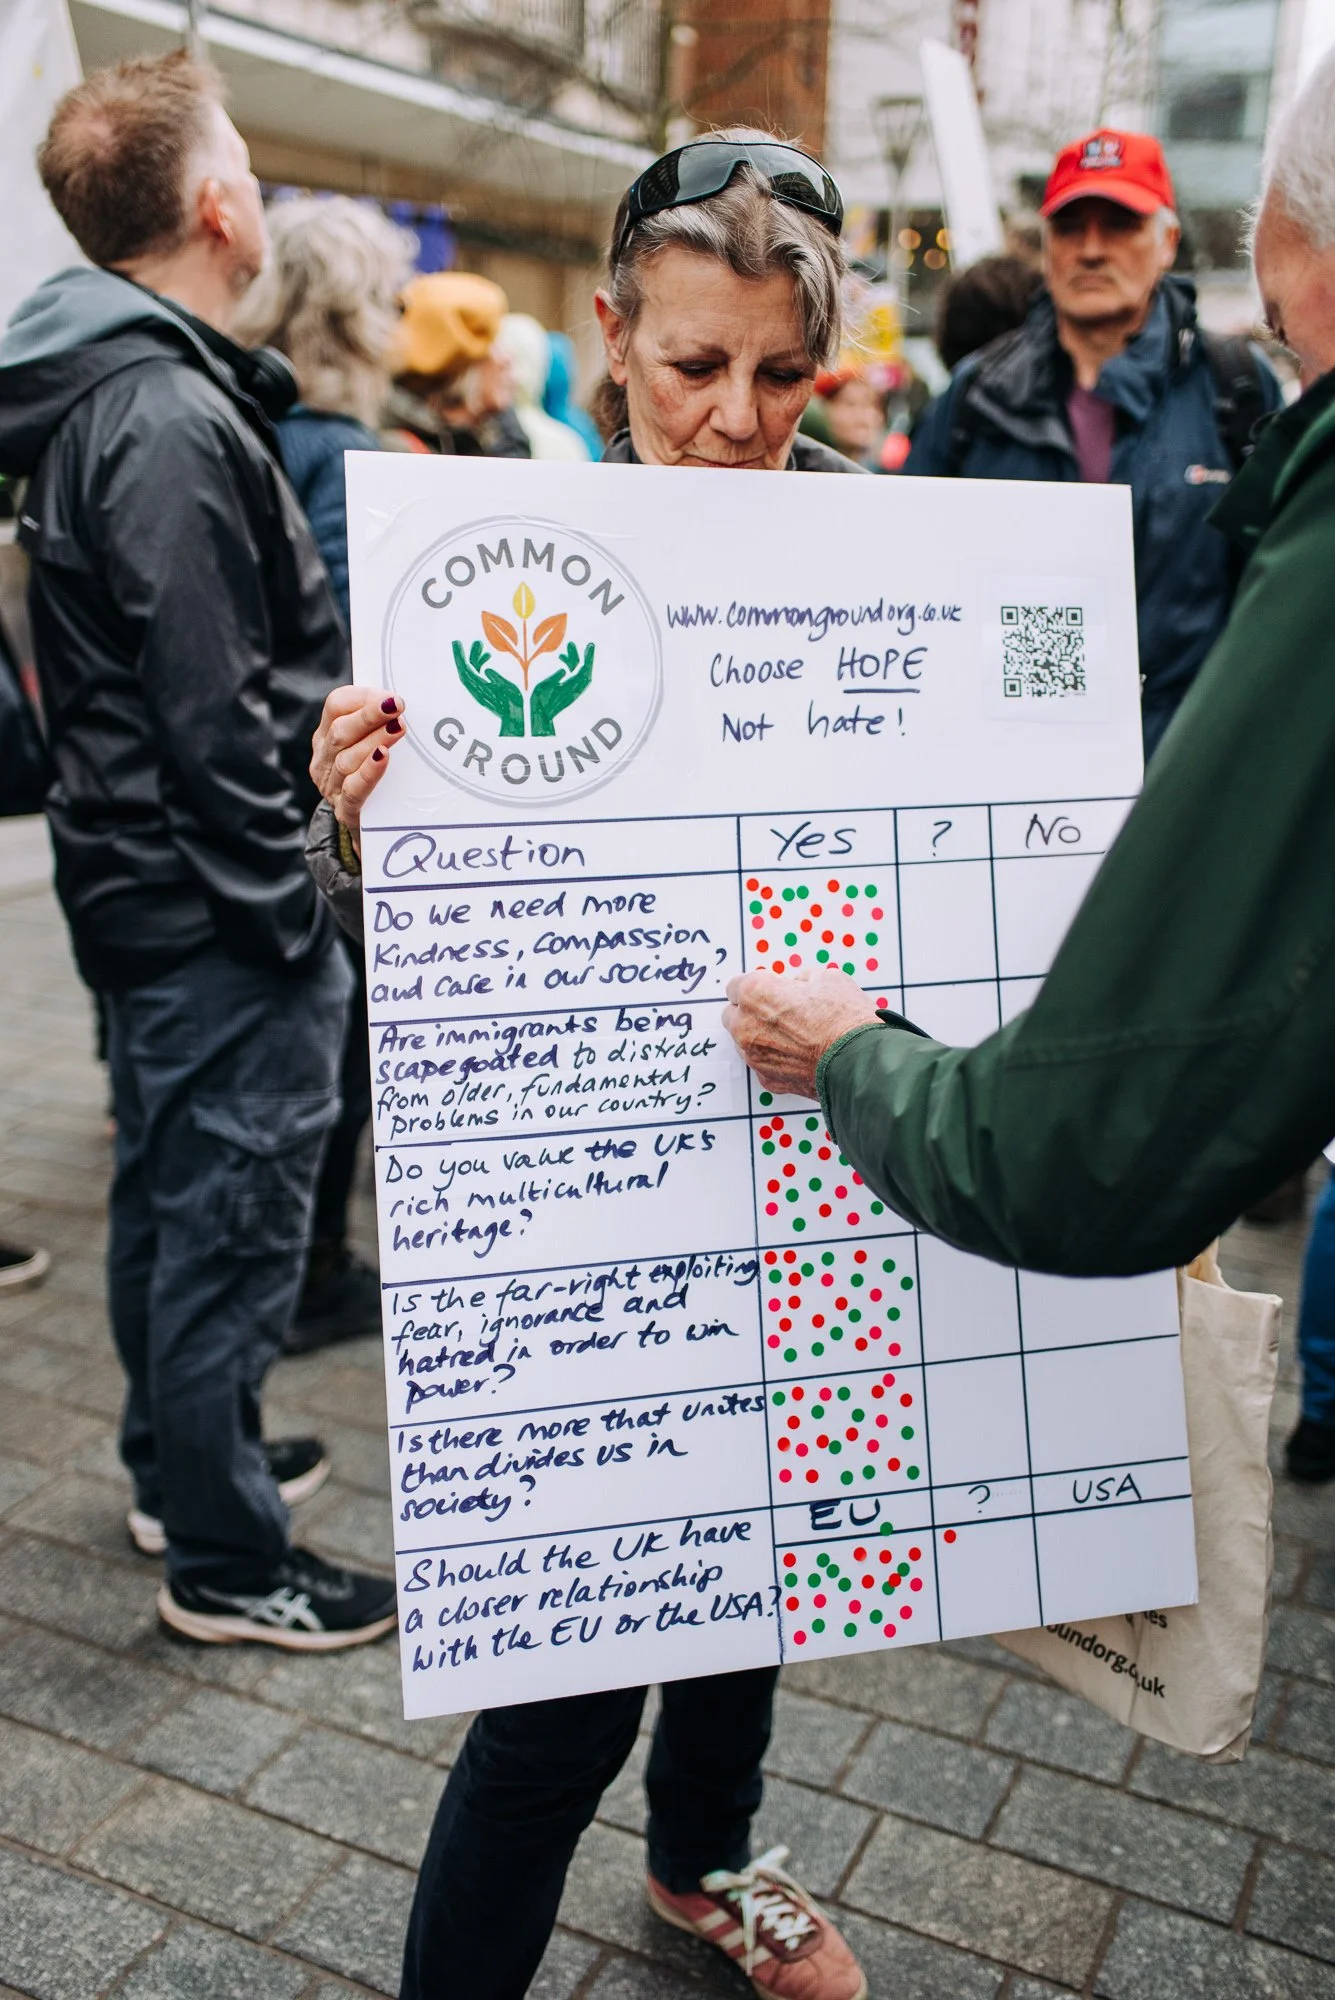 COMMON
GROUND
www.commongroundorg.co.uk
Choose HOPE
Not hate!
Question
Yes
?
No
Do we need more
kindness, compassion,
and care in our society?
Are immigrants being
scapegoated to distract
from older, fundamental
problems in our country?
Do you value the UK's
rich multicultural
heritage?
Is the far-right exploiting
fear, ignorance and
hatred in order to win
power?
Is there more that unites
than divides us in
society?
EU
?
USA
Should the UK have
a closer relationship
with the EU or the USA?